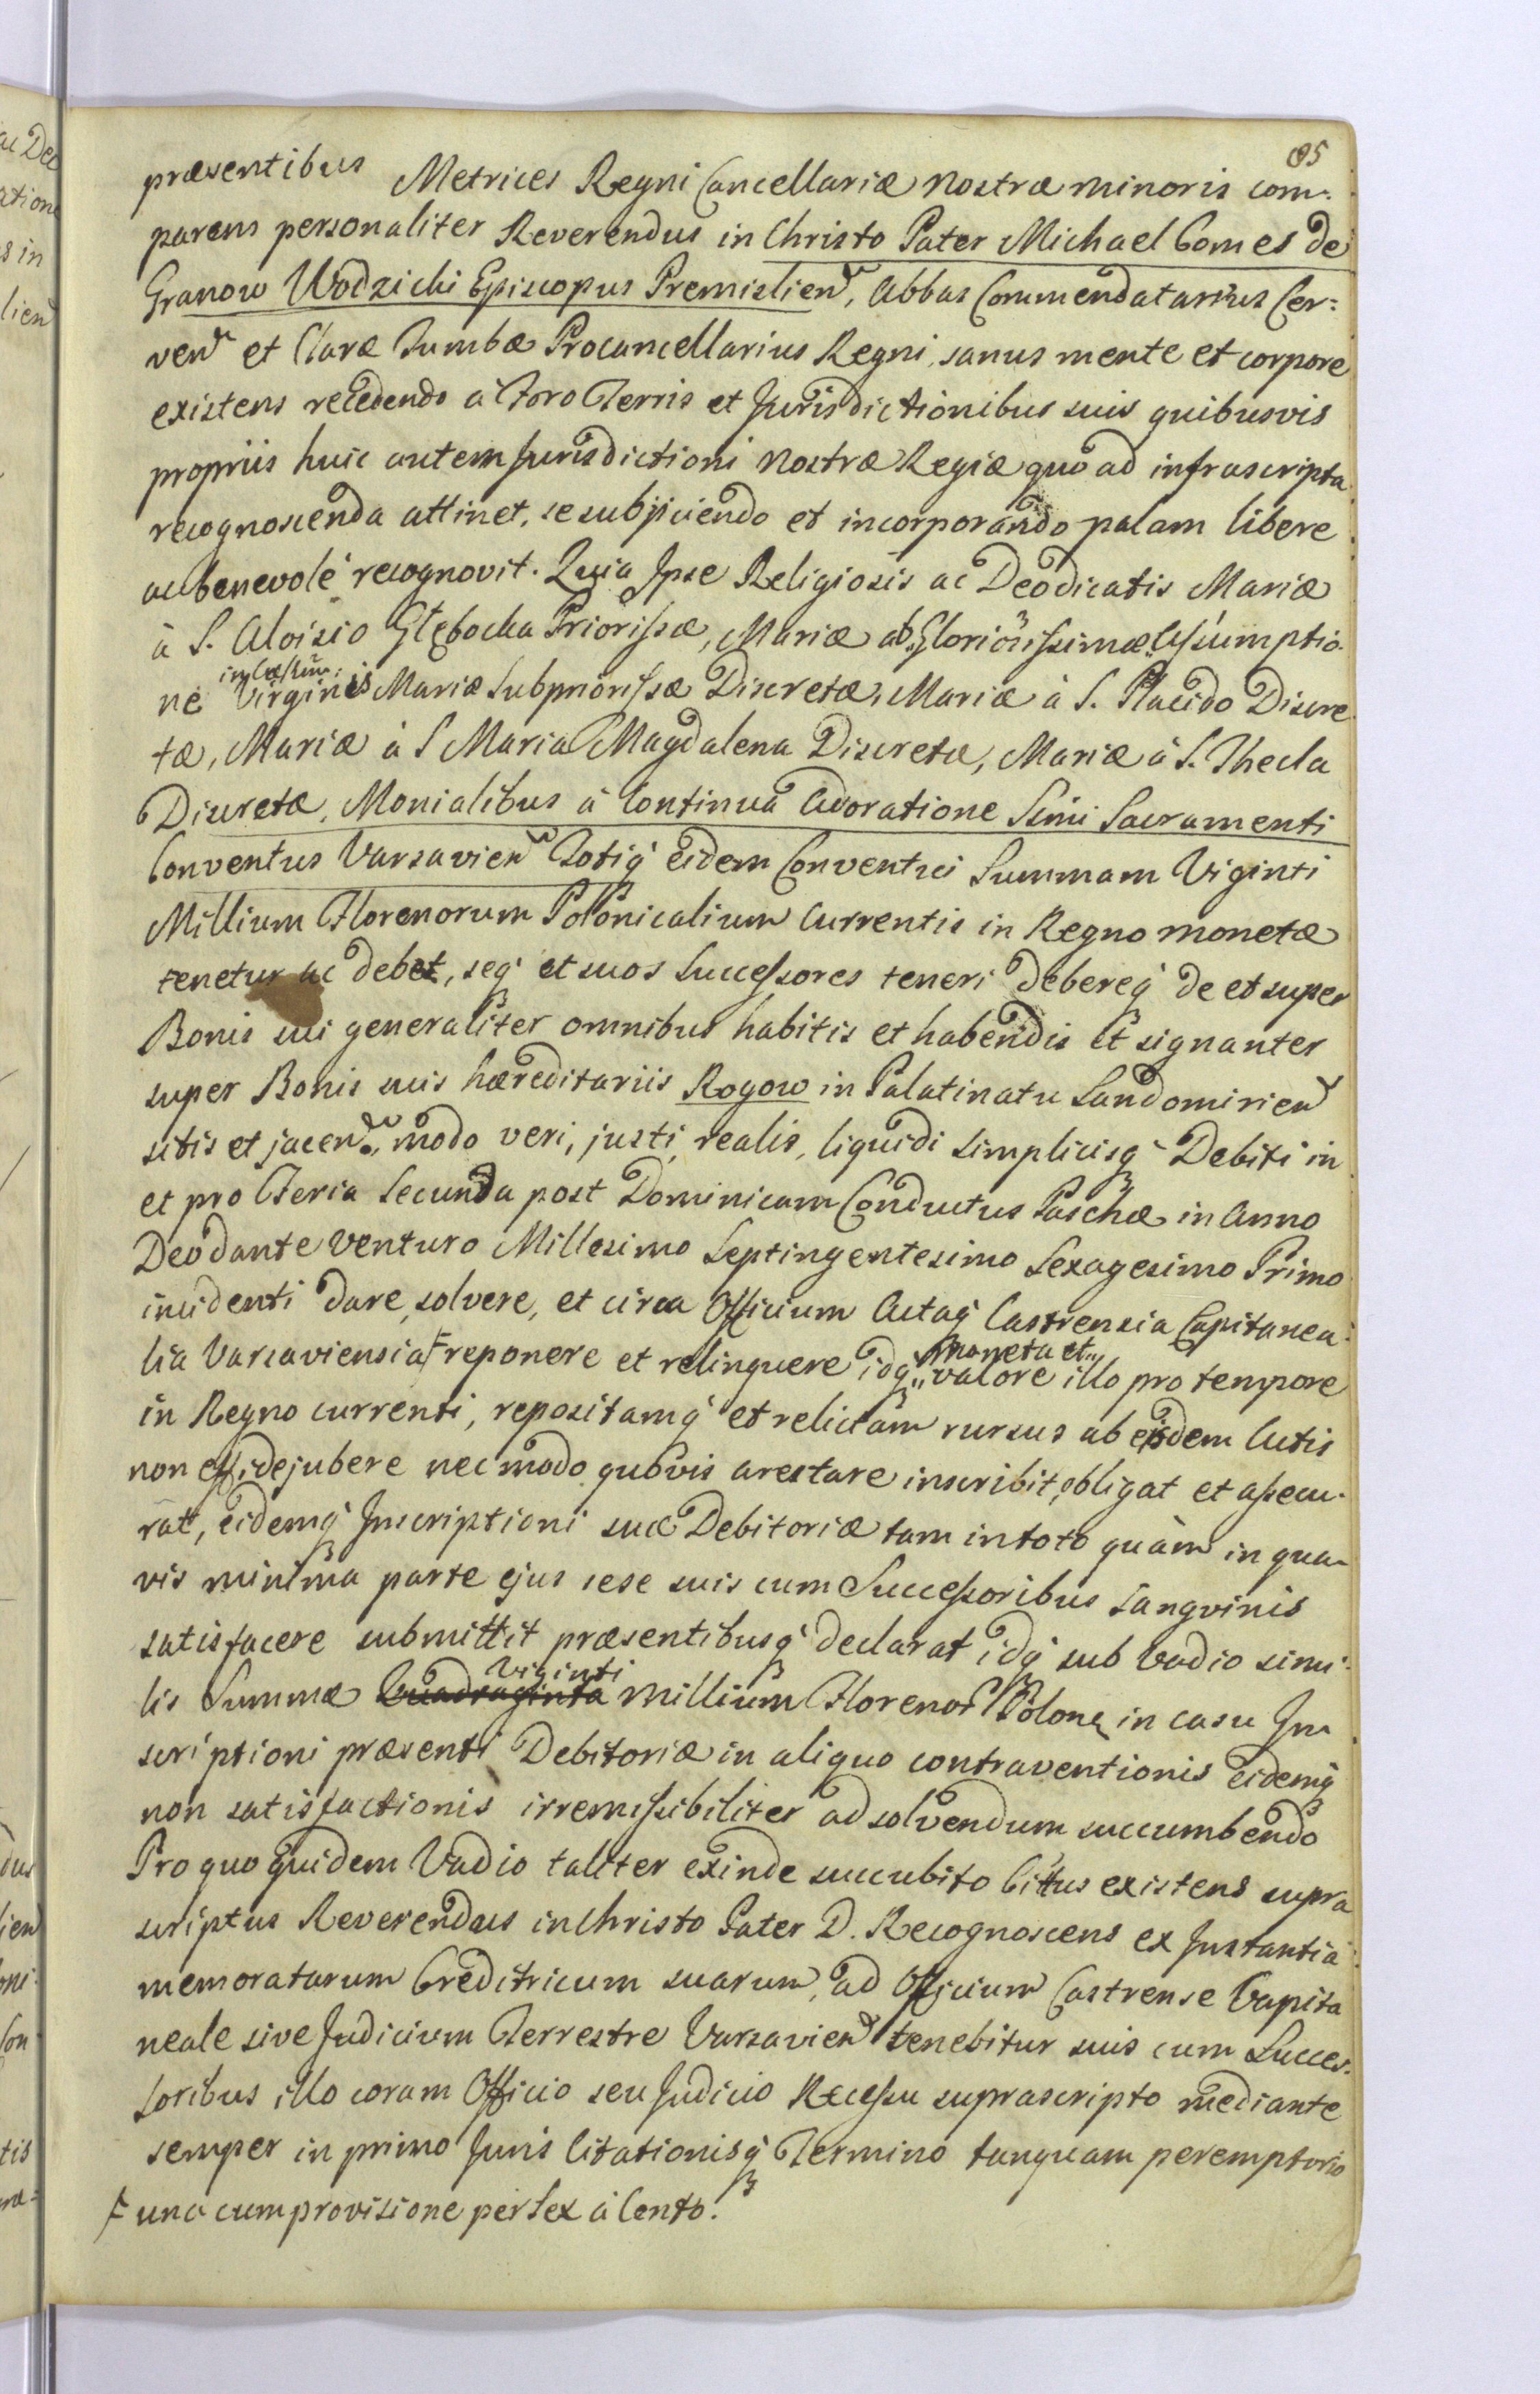 85
præsentibus Metrices Regni Cancellariæ nostræ minoris com-
parens personaliter Reverendus in Christo Pater Michael Comes de
Granow Wodzicki Episcopus Premislien, Abbas Commendatarius Cer-
ven et Claræ Tumbæ Procancellarius Regni, sanus mente et corpore
existens recedendo à Foro Terris et Jurisdictionibus suis quibusvis
propriis huic autem Jurisdictioni nostræ Regiæ quo ad infrascripta
recognoscenda attinet, se subjiciendo et incorporando palam libere
ac benevolè recognovit. Quia Ipse Religiosis ac Deodicatis Mariæ
à S. Aloisio Głębocka Priorissæ, Mariæ ab Gloriosissimæ Assumptio-
ne Virginis Mariæ Subpriorissæ Discretæ, Mariæ à S. Placido Discre-
tæ, Mariæ à S Maria Magdalena Discretæ, Mariæ à S. Thecla
Discretæ, Monialibus à Continuâ Adoratione Ssmi Sacramenti
Conventus Varsavien Totiq eidem Conventui Summam Viginti
Millium Florenorum Polonicalium Currentis in Regno monetæ
tenetur ac debet, seq et suos Successores teneri debereq de et super
Bonis sui generaliter omnibus habitis et habendis et signanter
super Bonis suis hæreditariis Rogow in Palatinatu Sandomirien
sitis et jacen, modo veri, justi, realis, liquidi simplicisq Debiti in
et pro Feria Secunda post Dominicam Conductus Paschæ in Anno
Deo dante venturo Millesimo Septingentesimo Sexagesimo Primo
incidenti dare, solvere, et circa Officium Actaq Castrensia Capitanea-
lia Varsaviensia Ŧ reponere et relinquere idq moneta et valore illo pro tempore
in Regno currenti, repositamq et relictam rursus ab eisdem Actis
non effidejubere nec modo quovis arestare inscribit, obligat et assecu-
rat, eidemq Inscriptioni suæ Debitoriæ tam in toto quàm in qua-
vis minima parte ejus sese suis cum Successoribus sangvinis
satisfacere submittit præsentibusq declarat idq sub Vadio simi-
lis Summæ Quadraginta Viginti Millium Florenor Polon in casu In-
scriptioni præsenti Debitoriæ in aliquo contraventionis eidemq
non satisfactionis irremissibiliter ad solvendum succumbendo
Pro quo quidem Vadio taliter exinde succubito Cittus existens supra
scriptus Reverendus in Christo Pater D. Recognoscens ex Instantia
memoratarum Creditricum suarum, ad Officium Castrense Capita
neale sive Judicium Terrestre Varsavien tenebitur suis cum Succes-
soribus illo coram Officio seu Judicio Recessu suprascripto mediante
semper in primo Juris Citationisq Termino tanquam peremptorio
Ŧ una cum provisione per sex à Cento.